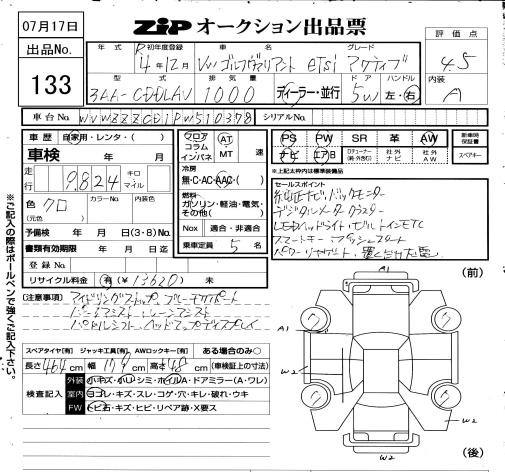 07月17日
出品No.
133
ZIP オークション出品票
評価点
4.5
内装
A
年式 初年度登録 車名 グレード
R 4年12月 VWゴルフヴァリアント eTSi アクティブ
型式 排気量 ドア ハンドル
3AA-CDDLAV 1000 ディーラー・並行 5W 左・右
車台No. WVWZZZCD1PW510378 シリアルNo.
車歴 自家用・レンタ・( )
車検 年 月
走行 9,824 キロ マイル
色 クロ (元色) カラーNo. 内装色
予備検 年 月 日(3・8)No.
書類有効期限 年 月 日迄
登録No.
リサイクル料金 有(¥ 13620 )
フロア コラム インパネ AT・MT 速
冷房 無・C・AC・AAC・( )
燃料 ガソリン・軽油・電気・その他( )
Nox 適合・非適合
乗車定員 5 名
PS PW SR 革 AW
ナビ エアB 社外ナビ 社外AW
新車時保証書
スペアキー
※上記太枠内は標準装備品
セールスポイント
純正ナビ バックモニター
デジタルメータークラスター
LEDヘッドライト・ビルトインETC
スマートキー・プッシュスタート
[注意事項] アイドリングストップ
パークアシスト・レーンアシスト
パドルシフト・ヘッドアップディスプレイ
スペアタイヤ[有] ジャッキ工具[有] AWロックキー[有] ある場合のみ○
長さ464cm 幅179cm 高さ148cm (車検証上の寸法)
検査記入
外装 小キズ・小凹・シミ・ホイルA・ドアミラー(A・ワレ)
室内 ヨゴレ・キズ・スレ・コゲ・穴・キレ・破れ・ウキ
FW トビ石・キズ・ヒビ・リペア跡・X要ス
※ご記入の際はボールペンで強くご記入下さい。
(前)
A1
A1
W2
W2
W2
(後)